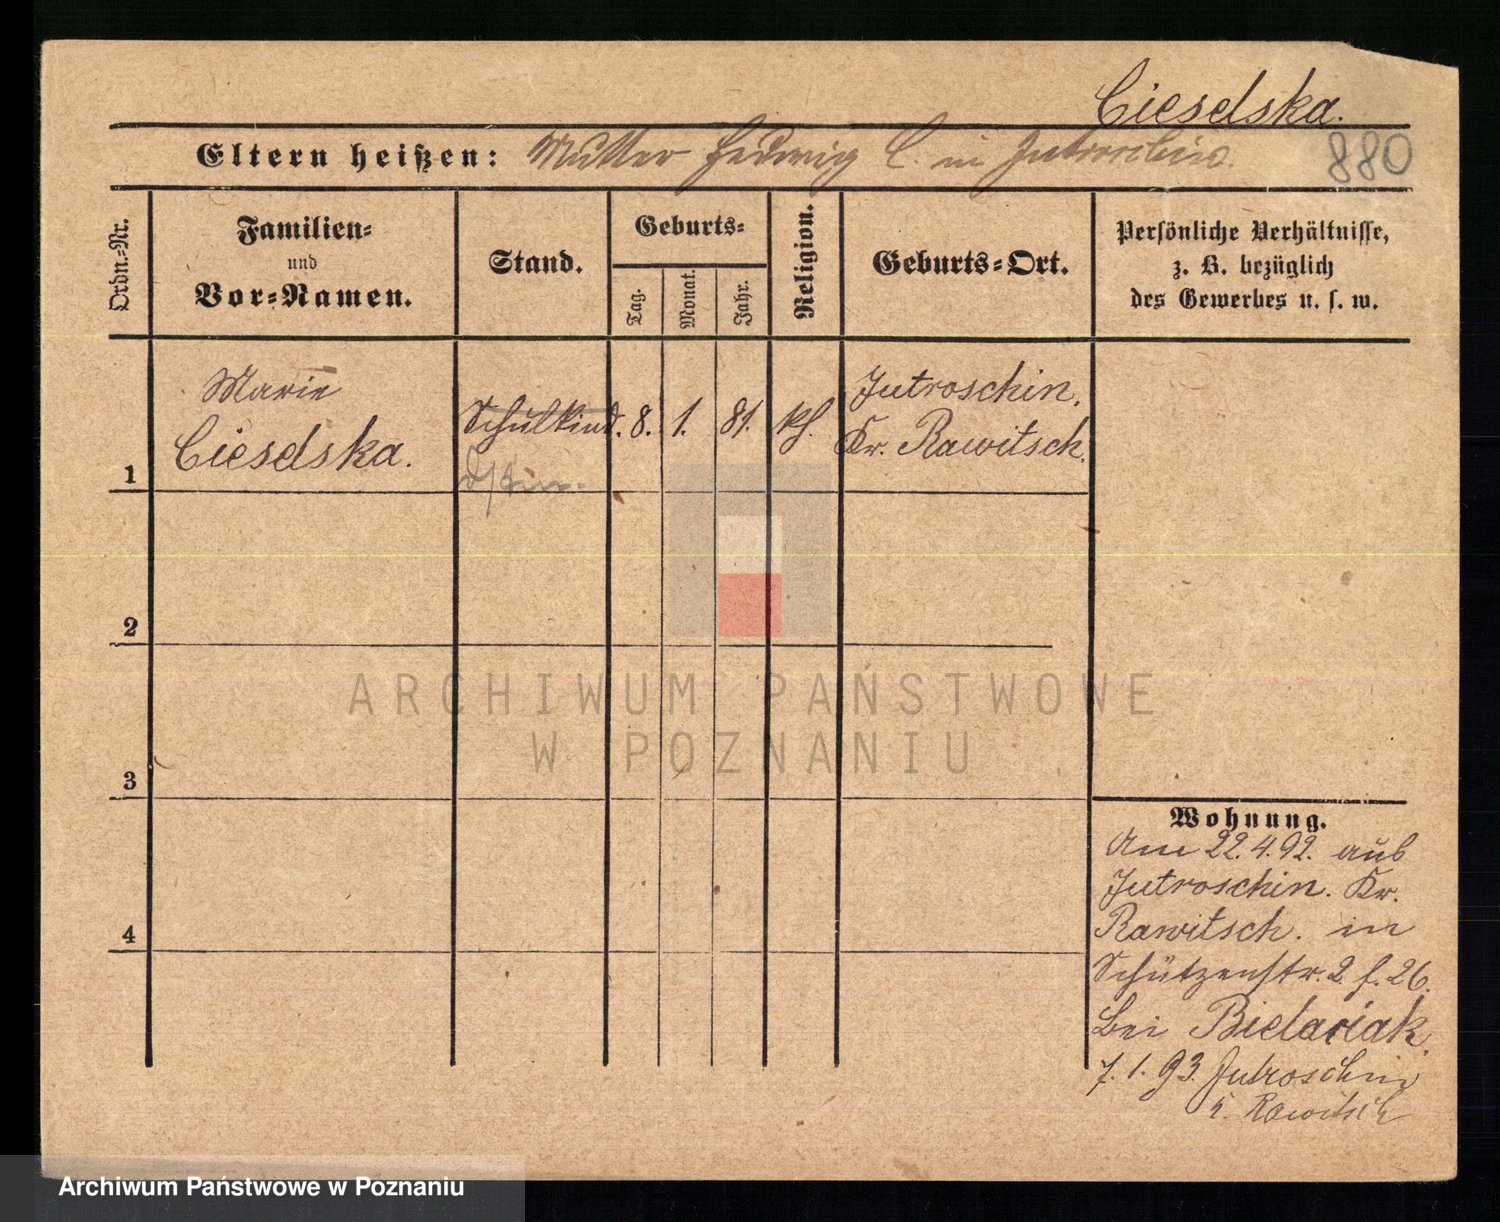 Cieselska.
Eltern heißen: Mutter Hedwig C in Jutroschin.
880
Ordn.-Nr.
Familien- und Vor-Namen.
Stand.
Geburts-
Tag.
Monat.
Jahr.
Religion.
Geburts-Ort.
Persönliche Verhältnisse,
z. B. bezüglich
des Gewerbes u. s. w.
1
Marie
Cieselska.
Schulkind.
8.
1.
81.
kh.
Jutroschin.
Kr. Rawitsch.
2
3
4
Wohnung.
Am 22.4.92. aus
Jutroschin. Kr.
Rawitsch. in
Schützenstr. 2. f. 26.
bei Bielaciak.
7. 1. 93. Jutroschin
Rawitsch
ARCHIWUM PAŃSTWOWE
W POZNANIU
Archiwum Państwowe w Poznaniu